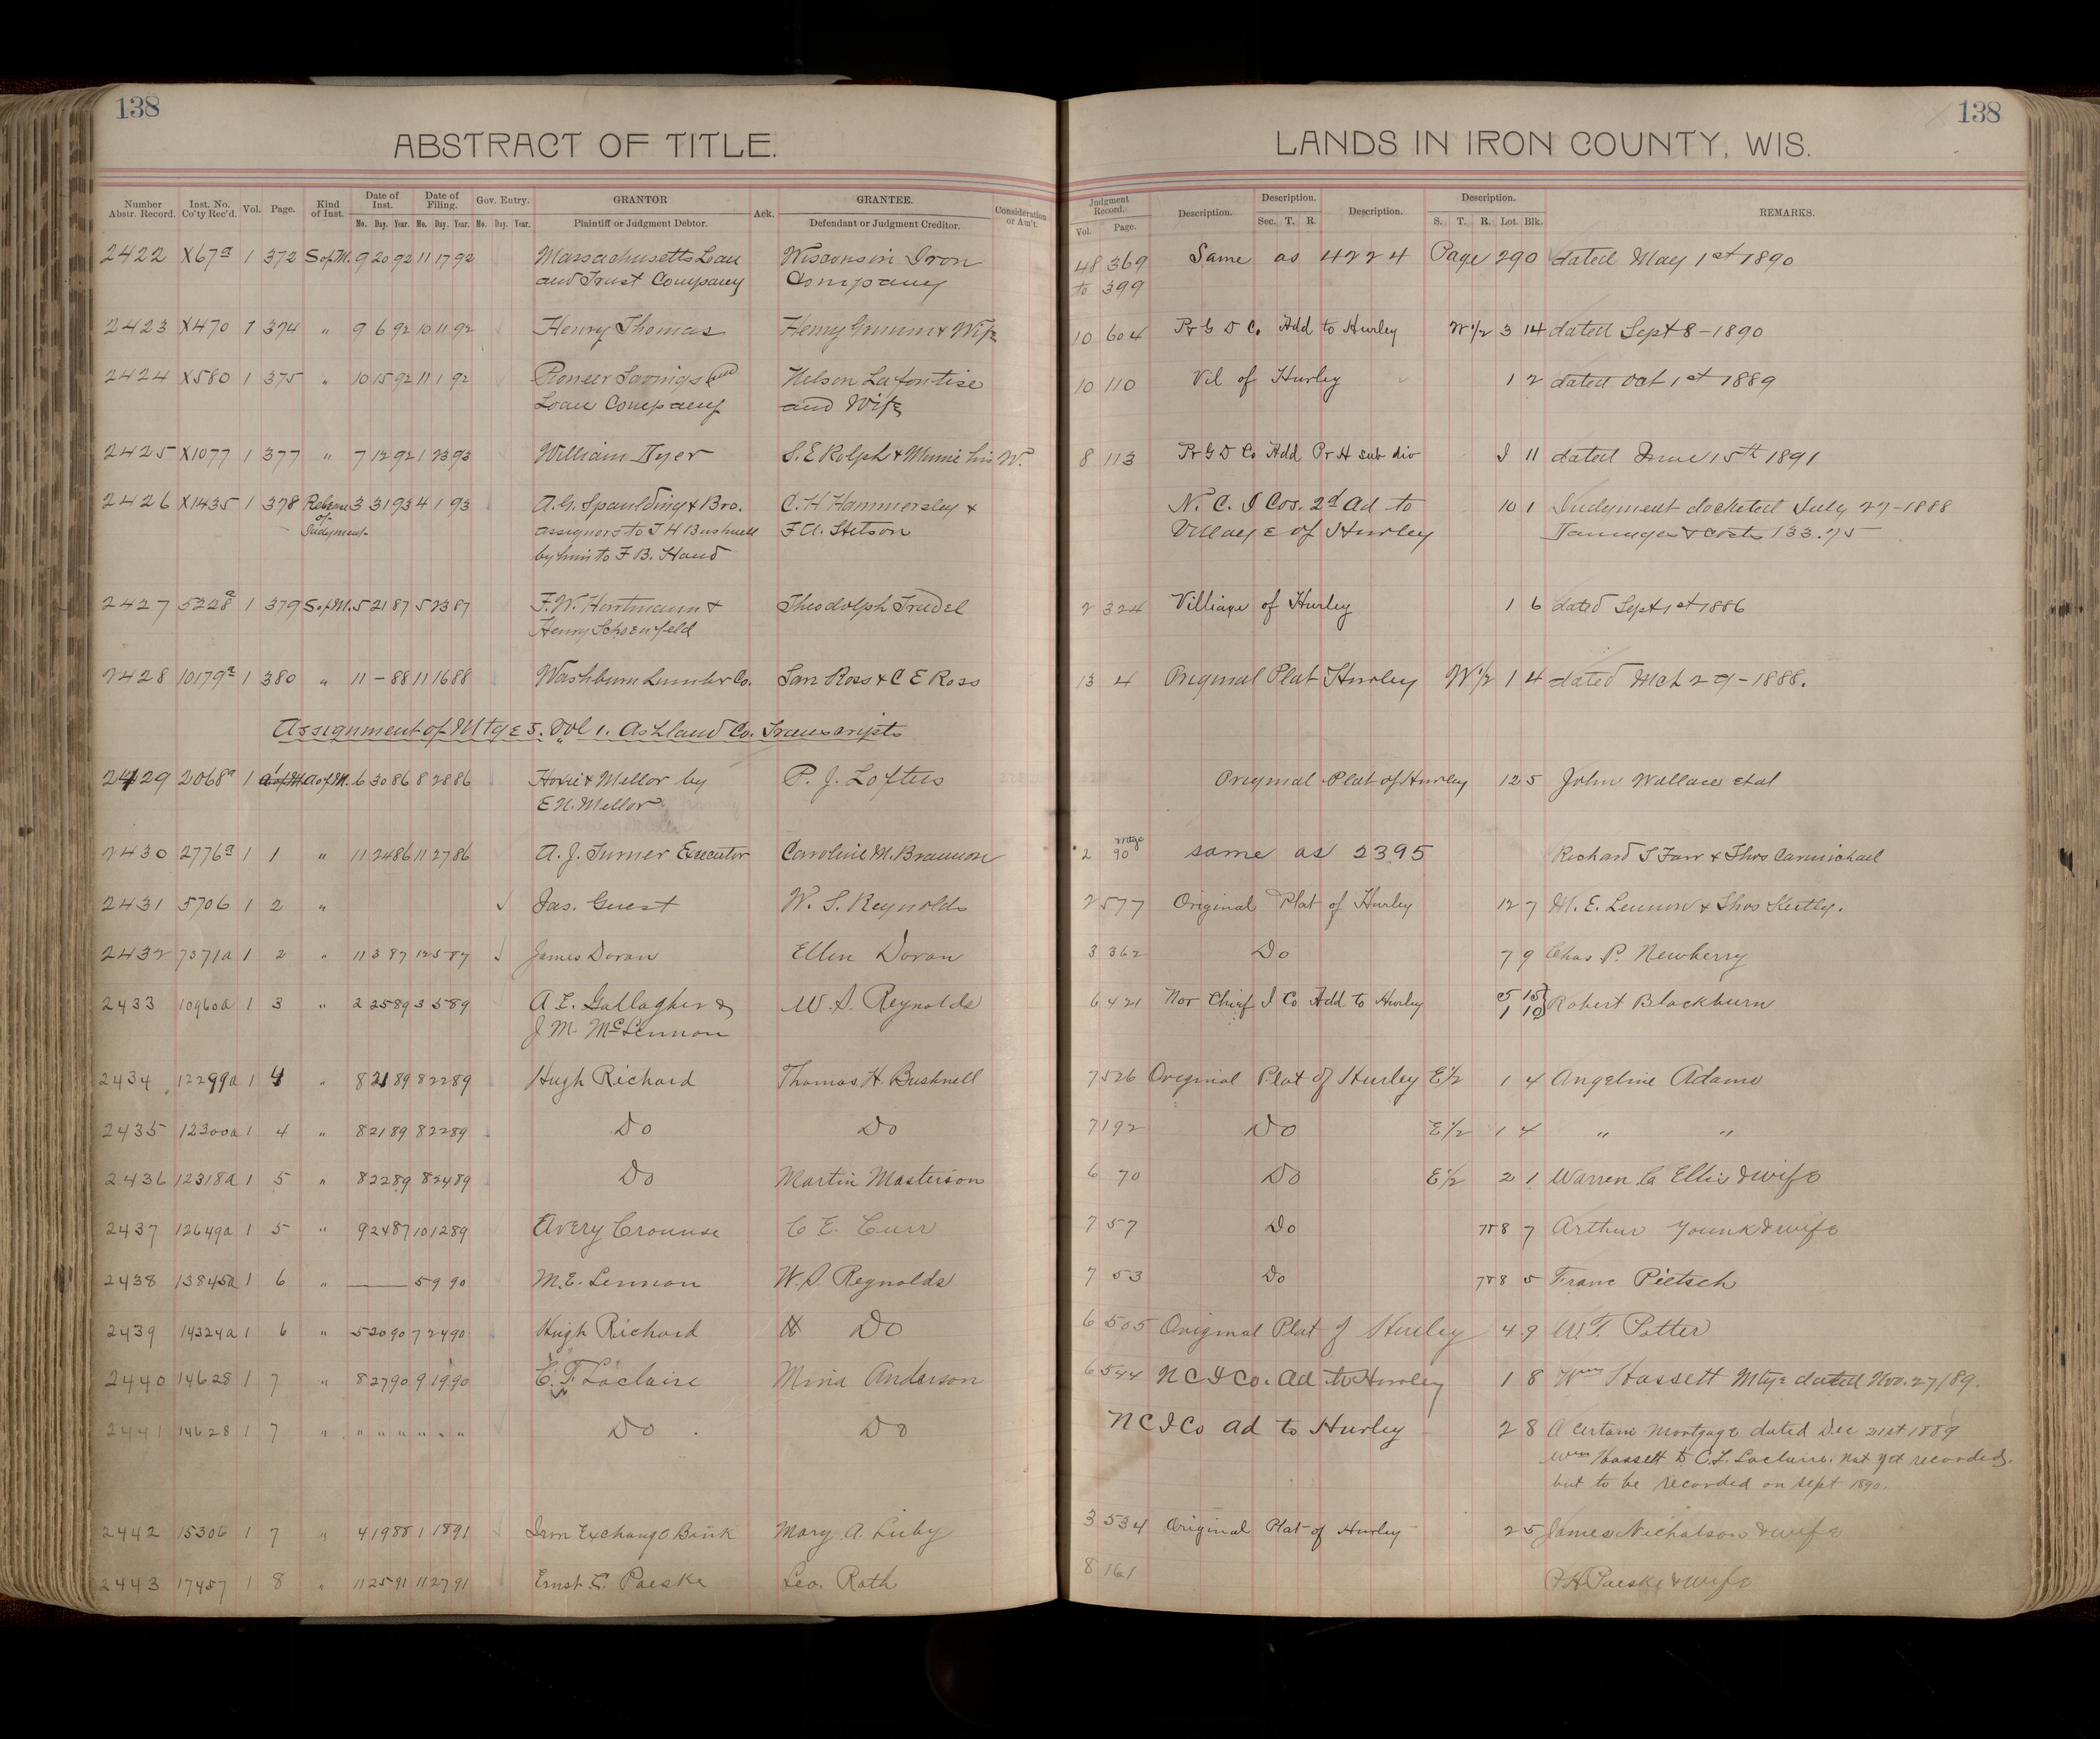 138
ABSTRACT OF TITLE.
Number Abstr. Record. Inst. No. Co'ty Rec'd. Vol. Page. Kind of Inst. Date of Inst. Mo. Day. Year. Date of Filing. Mo. Day. Year. Gov. Entry. Mo. Day. Year. GRANTOR Plaintiff or Judgment Debtor. Ack. GRANTEE. Defendant or Judgment Creditor. Consideration or Am't.
2422 X67a 1 372 S of M. 9 20 92 11 17 92 Massachusetts Loan Wisconsin Iron
and Trust Company Company
2423 X470 1 374 " 9 6 92 10 11 92 Henry Thomas Henry Grimm & Wife
2424 X580 1 375 " 10 15 92 11 1 92 Pioneer Savings and Nelson Lafontise
Loan Company and Wife
2425 X1077 1 377 " 7 12 92 1 23 93 William Dyer S. E Rolph & Minnie his W.
2426 X1435 1 378 Release 3 31 93 4 1 93 A. G. Spaulding & Bro. C. H Hammersley &
of
Judgment assignors to T H Bushnell F A. Stetson
by him to F B. Hand
2427 5228a 1 379 S of M. 5 21 87 5 23 87 F. W. Hartmann & Theodolph Trudel
Henry Schoenfeld
2428 10179a 1 380 " 11 - 88 11 16 88 Washburn Lumber Co. Ian Ross & C E Ross
Assignment of Mtges. Vol 1. Ashland Co. Transcripts
2429 2068a 1 A of M. 6 30 86 8 28 86 Hoxie & Mellor by P. J. Loftus
E N. Mellor
2430 2776a 1 1 " 11 24 86 11 27 86 A. J. Turner Executor Caroline M. Brannon
2431 5706 1 2 " Jas. Guest W. S. Reynolds
2432 7371a 1 2 " 11 3 87 12 5 87 James Doran Ellen Doran
2433 10960a 1 3 " 2 25 89 3 5 89 A. E. Gallagher & W. S. Reynolds
J M. McLennon
2434 12299a 1 4 " 8 21 89 8 22 89 Hugh Richard Thomas H. Bushnell
2435 12300a 1 4 " 8 21 89 8 22 89 Do Do
2436 12318a 1 5 " 8 22 89 8 24 89 Do Martin Masterson
2437 12649a 1 5 " 9 24 87 10 12 89 Avery Crounse C E. Curr
2438 13845a 1 6 " — 5 9 90 M. E. Lennon W. S. Reynolds
2439 14324a 1 6 " 5 20 90 7 24 90 Hugh Richard Do
2440 14628 1 7 " 8 27 90 9 19 90 C. F. Laclaire Minia Anderson
2441 14628 1 7 " " " " " " " Do Do
2442 15306 1 7 " 4 19 88 1 18 91 Iron Exchange Bank Mary. A. Luby
2443 17457 1 8 " 11 25 91 11 27 91 Ernst E. Paeske Leo. Roth
138
LANDS IN IRON COUNTY, WIS.
Judgment Record. Vol. Page. Description. Description. Sec. T. R. Description. Description. S. T. R. Lot. Blk. REMARKS.
48 369 Same as 4224 Page 290 dated May 1st 1890
to 399
10 604 Pr G D Co Add to Hurley W 1/2 3 14 dated Sept 8-1890
10 110 Vil of Hurley 1 2 dated Oct 1st 1889
8 113 Pr G D Co Add Pr H sub div 11 dated June 15th 1891
N. C. I Cos. 2d Ad to 10 1 Judgment docketed July 27-1888
Village of Hurley Damages & Costs 133.75
2 324 Villiage of Hurley 1 6 dated Sept 1st 1886
13 4 Original Plat Hurley W 1/2 1 4 dated Mch 27-1888.
Original Plat of Hurley 12 5 John Wallace et al
2 mtge 90 same as 2395 Richard T Farr & Thos Carmichael
2 577 Original Plat of Hurley 12 7 M. E. Lennon & Thos Keetly.
3 362 Do 7 9 Chas P. Newberry
6 421 Nor Chief I Co Add to Hurley 5 15 Robert Blackburn
1 10
7 526 Original Plat of Hurley E 1/2 1 4 Angeline Adams
7 192 Do E 1/2 1 4 " "
6 70 Do E 1/2 2 1 Warren C Ellis & wife
7 57 Do 7&8 7 Arthur Younk & wife
7 53 Do 7&8 5 Franc Pietsch
6 505 Original Plat of Hurley 4 9 W. T. Potter
6 544 N C I Co. Ad to Hurley 1 8 Wm Hassett Mtge dated Nov. 27/89.
N C I Co ad to Hurley 2 8 A certain mortgage dated Dec 21st 1889
Wm Hassett to C. F. Laclaire. not yet recorded.
but to be recorded on sept 1890.
3 534 Original Plat of Hurley 2 5 James Nicholson & wife
8 161 Paeske & wife